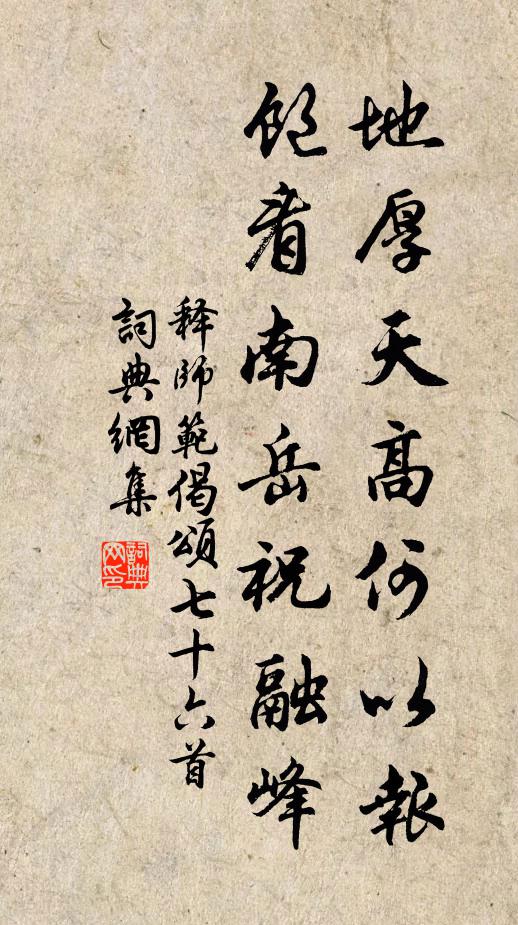 地厚天高何以報
飽看南岳祝融峰
释師範偈頌七十六首
詞典網集
詞典网印